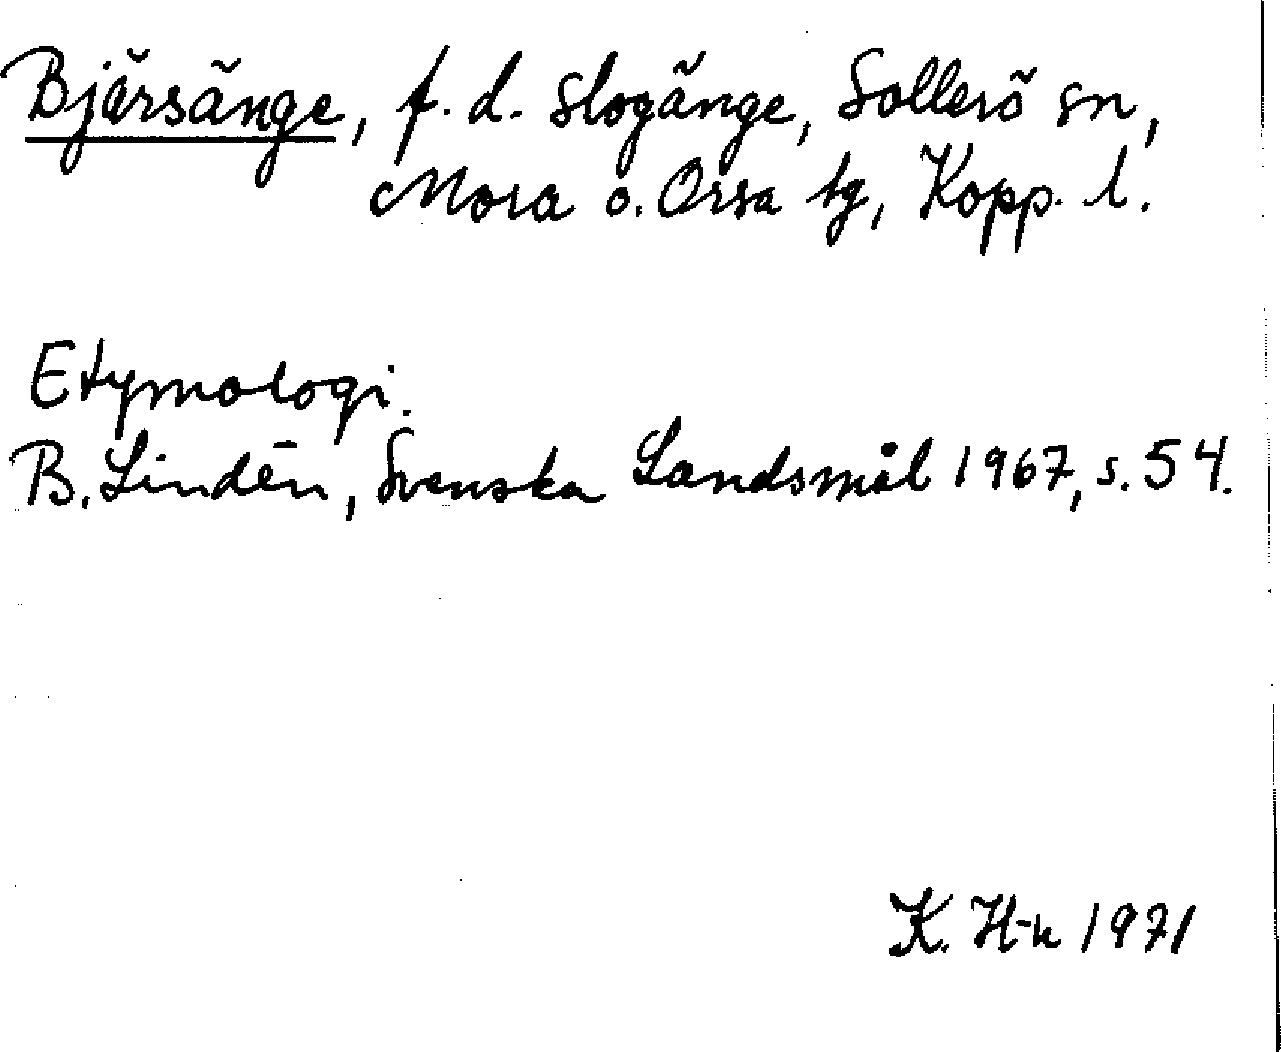 Bjärsänge, f. d. slogänge, Sollerö sn,
Mora o. Orsa tg, Kopp. l.
Etymologi.
B. Lindén, Svenska Landsmål 1967, s. 54.
K. H-n 1971